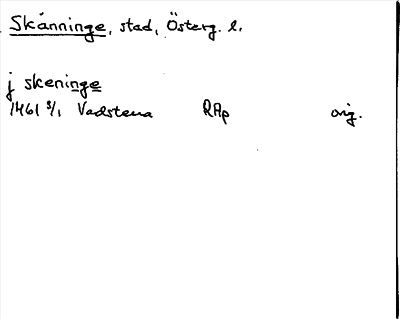 Skänninge, stad, Österg. l.
j skeninge
1461 5/1 Vadstena RAp orig.